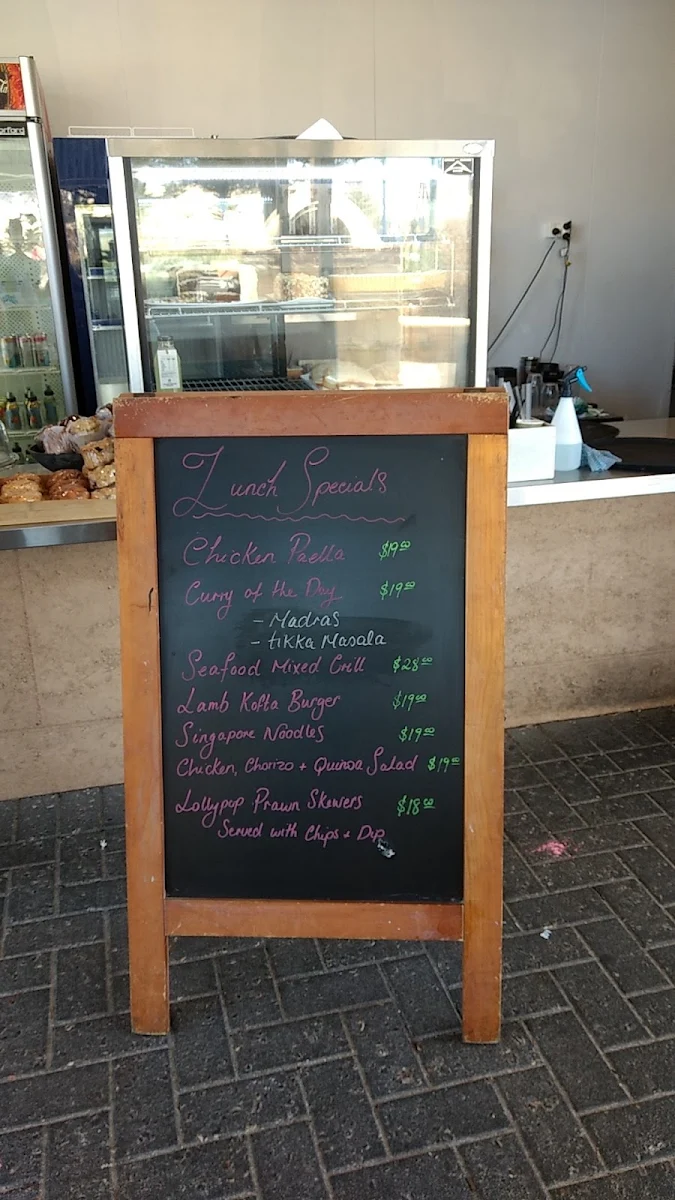 Lunch Specials
Chicken Paella $19.00
Curry of the Day $19.00
- Madras
- tikka Masala
Seafood Mixed Grill $28.00
Lamb Kofta Burger $19.00
Singapore Noodles $19.00
Chicken, Chorizo + Quinoa Salad $19.00
Lollypop Prawn Skewers $18.00
Served with Chips + Dip